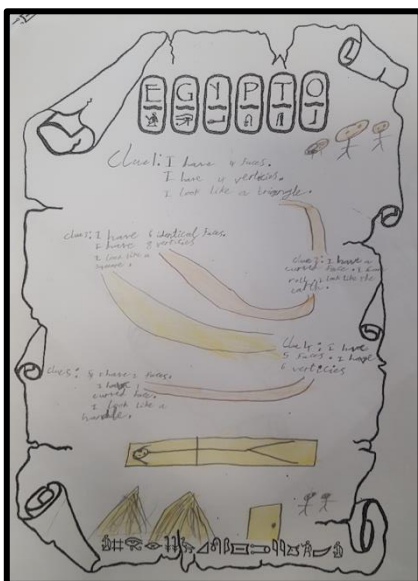 EGIPTO
Clue1: I have 4 faces.
I have 4 verticies.
I look like a triangle.
Clue3: I have 6 identical faces.
I have 8 verticies
I look like a
square.
Clue2: I have a
curved face. I can
roll. I look like the
earth.
Clue4: I have
5 faces. I have
6 verticies
Clue5: I have 2 faces.
I have
curved face.
I look like a